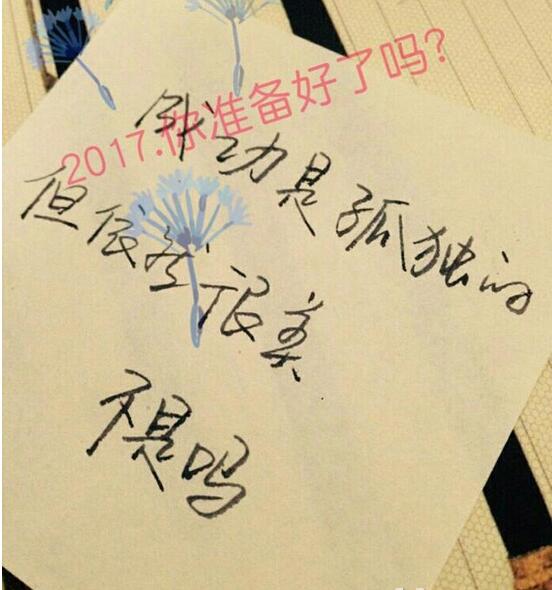 2017.你准备好了吗?
成功是孤独的
但依然很美
不是吗